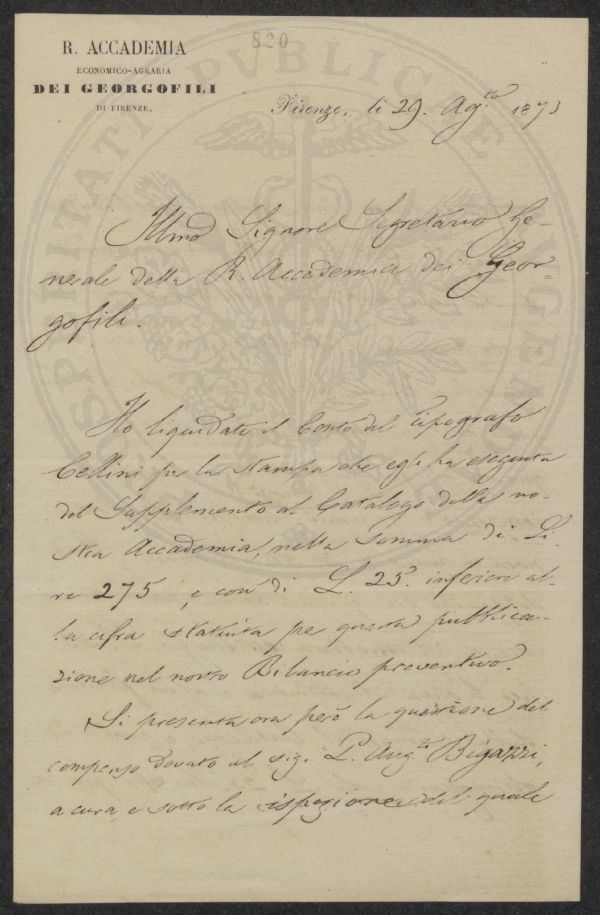 820
R. ACCADEMIA
ECONOMICO-AGRARIA
DEI GEORGOFILI
DI FIRENZE.
Firenze, li 29. Ag.to 1873
Illmo Signore Segretario Ge-
nerale della R. Accademia dei Geor-
gofili.
Ho liquidato il Conto del tipografo
Cellini per la stampa che egli ha eseguita
del Supplemento al Catalogo della no-
stra Accademia, nella somma di Li-
re 275, e così di L. 25. inferiore al-
la cifra statuita per questa pubblica-
zione nel nostro Bilancio preventivo.
Si presenta ora però la questione del
compenso dovuto al sig. P. Aug.to Bigazzi,
a cura, e sotto la ispezione del quale